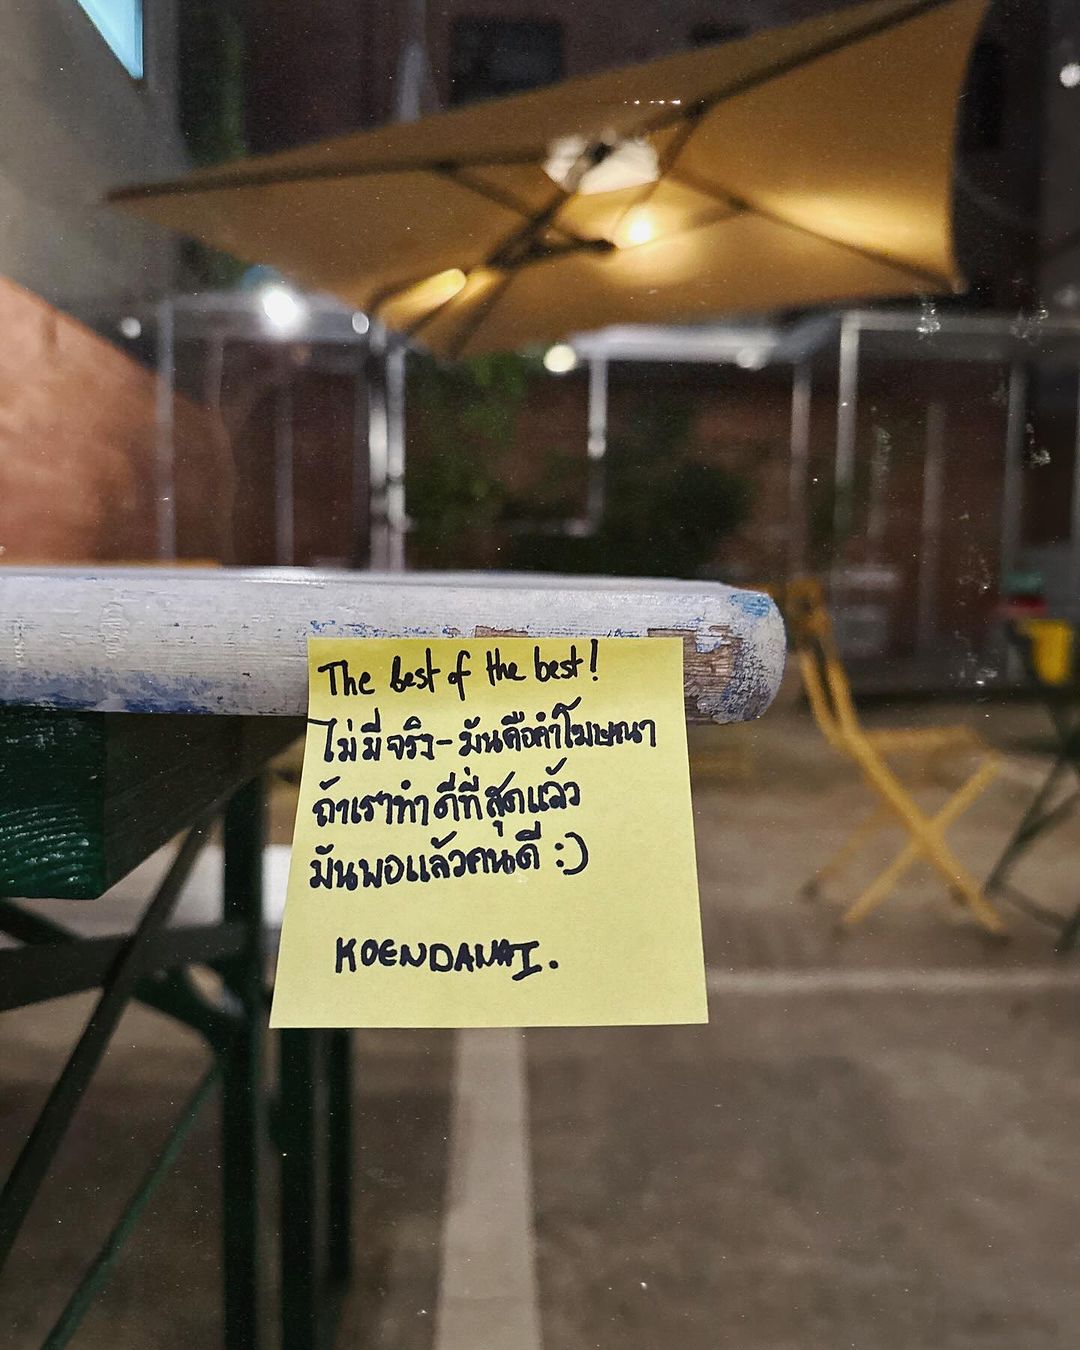 The best of the best!
ไม่มีจริง-มันคือคำโฆษณา
ถ้าเราทำดีที่สุดแล้ว
มันพอแล้วคนดี :)
KOENDANAI.